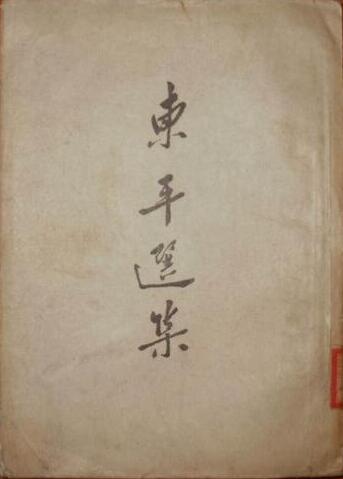 東平選集